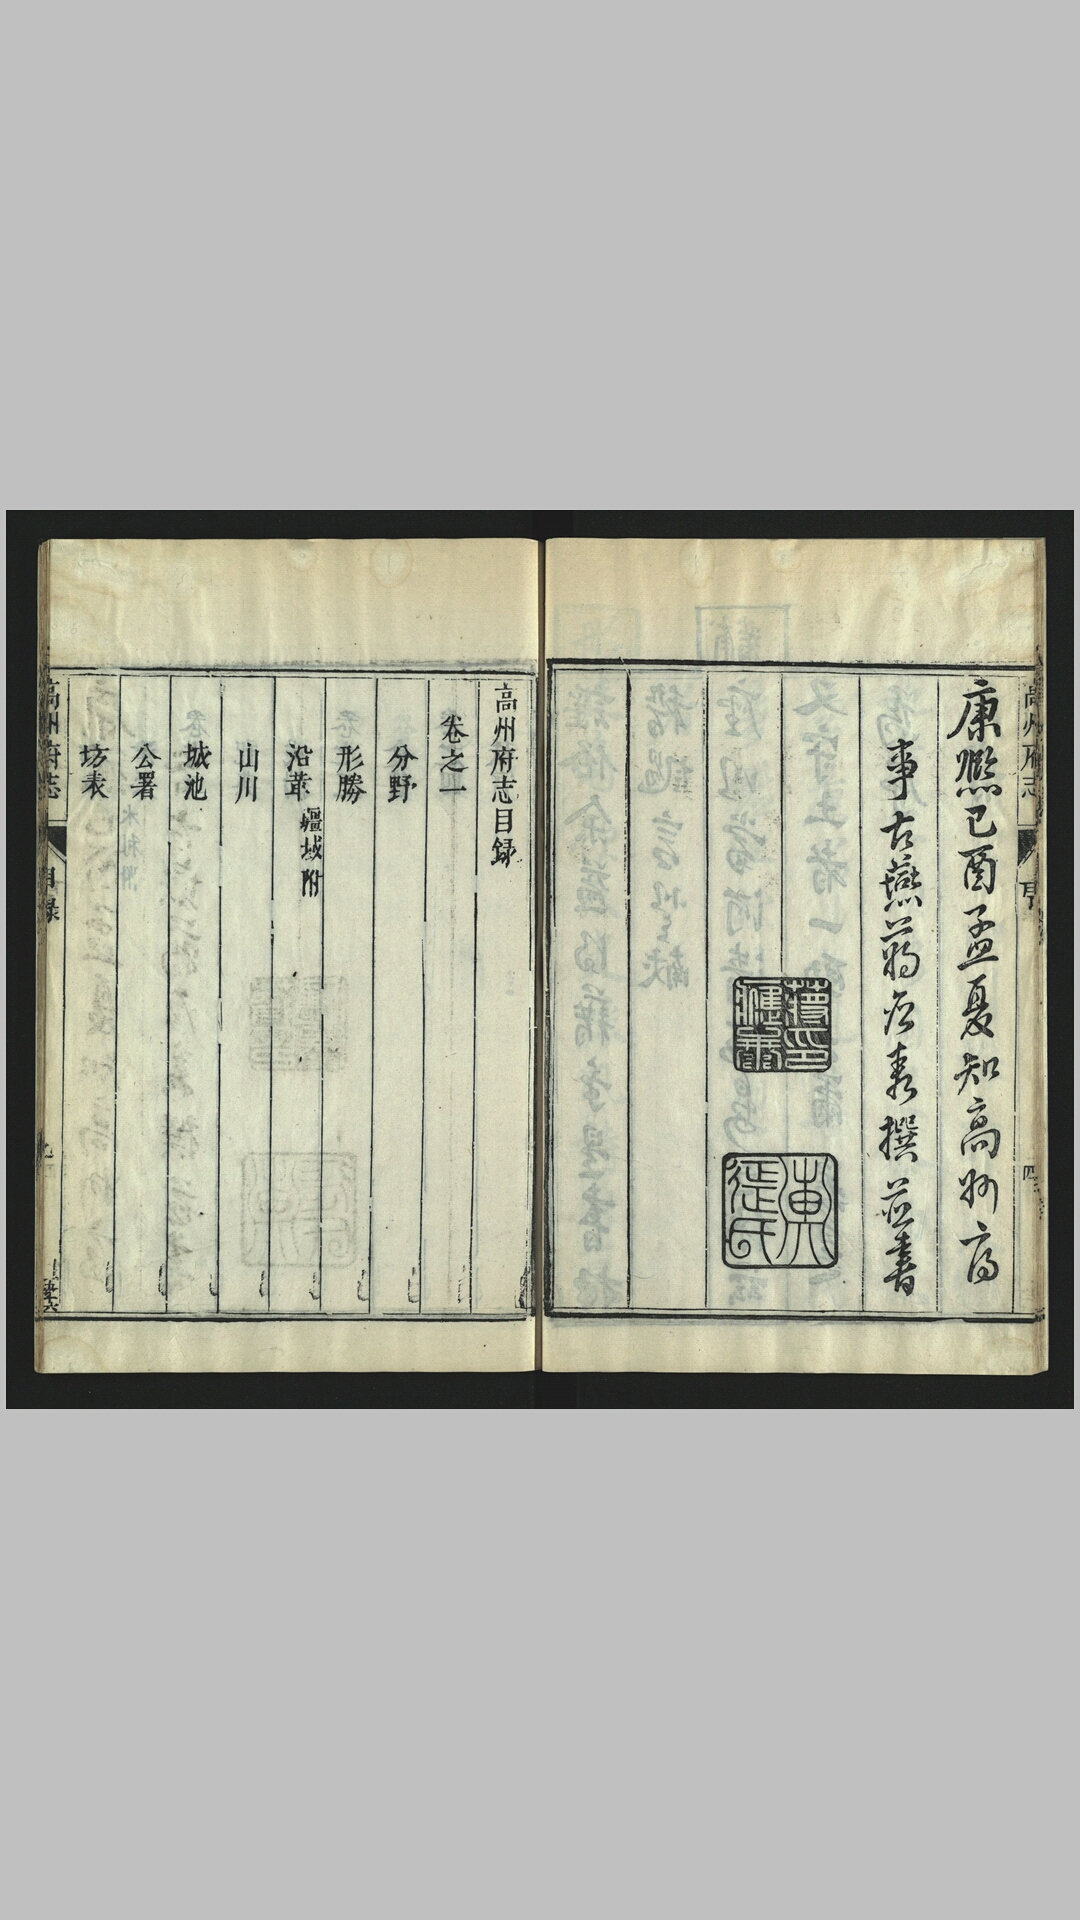 高州府志
四
康熙己酉孟夏知高州府
事古燕蔣應泰撰並書
蔣應泰印
高州府志目録
卷之一
分野
形勝
沿革 疆域附
山川
城池
公署
坊表
高州府志
目録